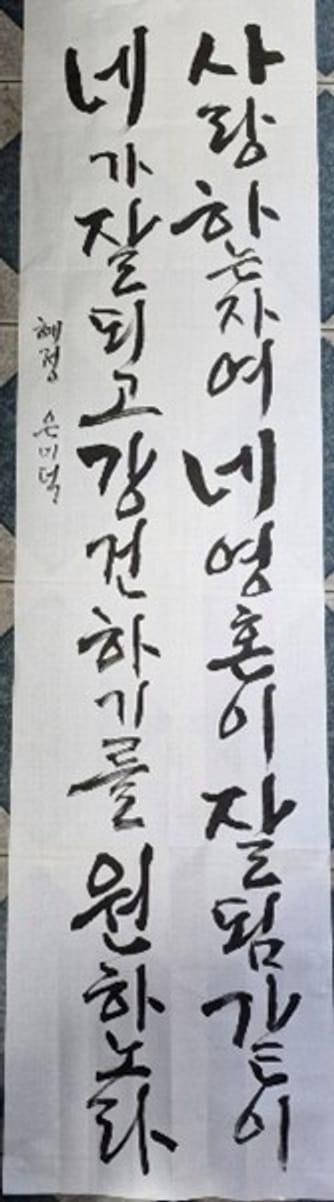 사랑하는자여 네영혼이 잘됨같이
네가잘되고강건하기를 원하노라
혜정 손미덕